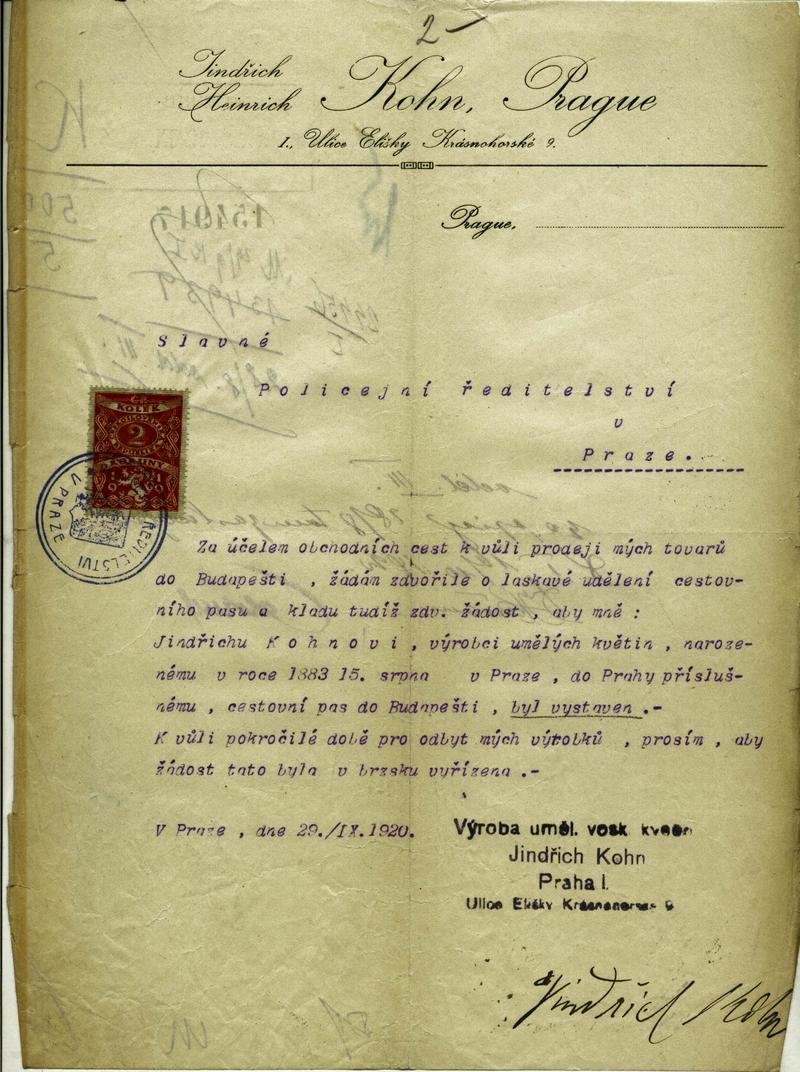 2
Jindřich
Heinrich Kohn, Prague
I., Ulice Elišky Krásnohorské 9.
K
500
5
154017
Prague,
Slavné
Policejní ředitelství
v
Praze.
KOLEK
2
V PRAZE
ŘEDITELSTVÍ
Za účelem obchodních cest k vůli prodeji mých tovarů
do Budapešti , žádám zdvořile o laskavé udělení cestov-
ního pasu a kladu tudíž zdv. žádost , aby mně :
Jindřichu Kohnovi , výrobci umělých květin , naroze-
nému v roce 1883 15. srpna v Praze , do Prahy přísluš-
nému , cestovní pas do Budapešti , byl vystaven .-
K vůli pokročilé době pro odbyt mých výrobků , prosím , aby
žádost tato byla v brzsku vyřízena .-
V Praze , dne 29./IX.1920.
Výroba uměl. vosk květin
Jindřich Kohn
Praha I.
Ulice Elišky Krásnohorské 9
Jindřich Kohn